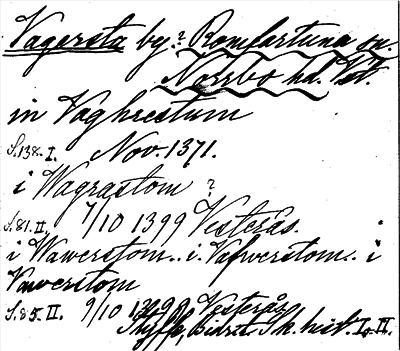 Vagersta by? Romfartuna sn.
Norrbo hd. Vst.
in Vaghrestum
S. 138. I. Nov. 1371.
i Wagrastom ?
S. 81. II. 7/10 1399 Vesterås.
i Wawerstom.. i. Vafverstom.. i
Vawerstom
S. 85. II. 9/10 1399 Vesterås.
Styffe, Bidrag Sk. hist. I, II.